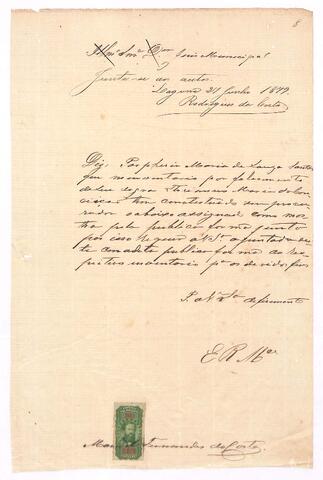 8
Illmo Snr Dor Juiz Municipal
Junte-se aos autos.
Laguna 21 Junho 1879
Rodrigues da Costa
Diz Porpheria Maria de Souza
que no inventario por falecimento
de seu sogra Maria da Con
tem constituido seu procu
rador o abaixo assignado como mos
tra pela publica forma junto
por isso requer a V.Sa a juntada des
te com a dita publica forma ao res
pectivo inventario pa os devidos fins
P. a V.Sa deferimento
E R Mce
Manoel Fernandes da Costa